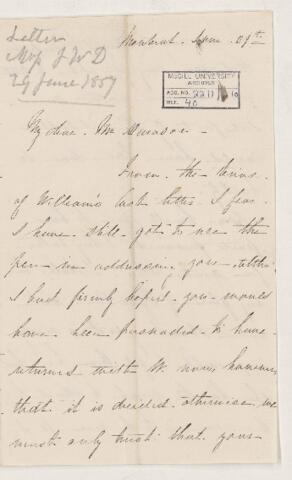 Letter
Mrs J W D
29 June 1857
Montreal June 29th
McGILL UNIVERSITY
ARCHIVES
ACC. NO. 2211
REF. 40
My dear Mr
From the tenor
of William's last letter I fear
I have still got to use the
pen in addressing you, altho
I had firmly hoped you would
have been persuaded to have
returned with W now, however,
that it is decided otherwise we
must only trust that your